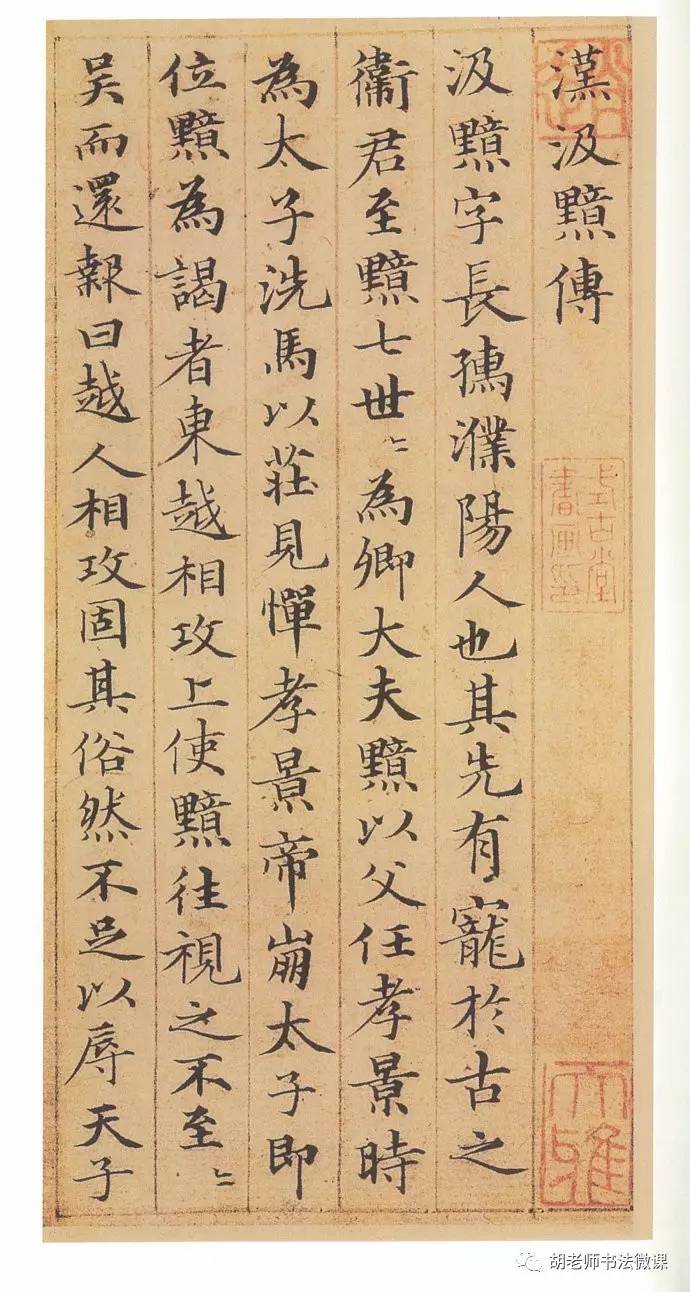 漢汲黯傳
汲黯字長孺濮陽人也其先有寵於古之
衞君至黯七世〻為卿大夫黯以父任孝景時
為太子洗馬以莊見憚孝景帝崩太子即
位黯為謁者東越相攻上使黯往視之不至〻
吳而還報曰越人相攻固其俗然不足以辱天子
大雅
胡老师书法微课